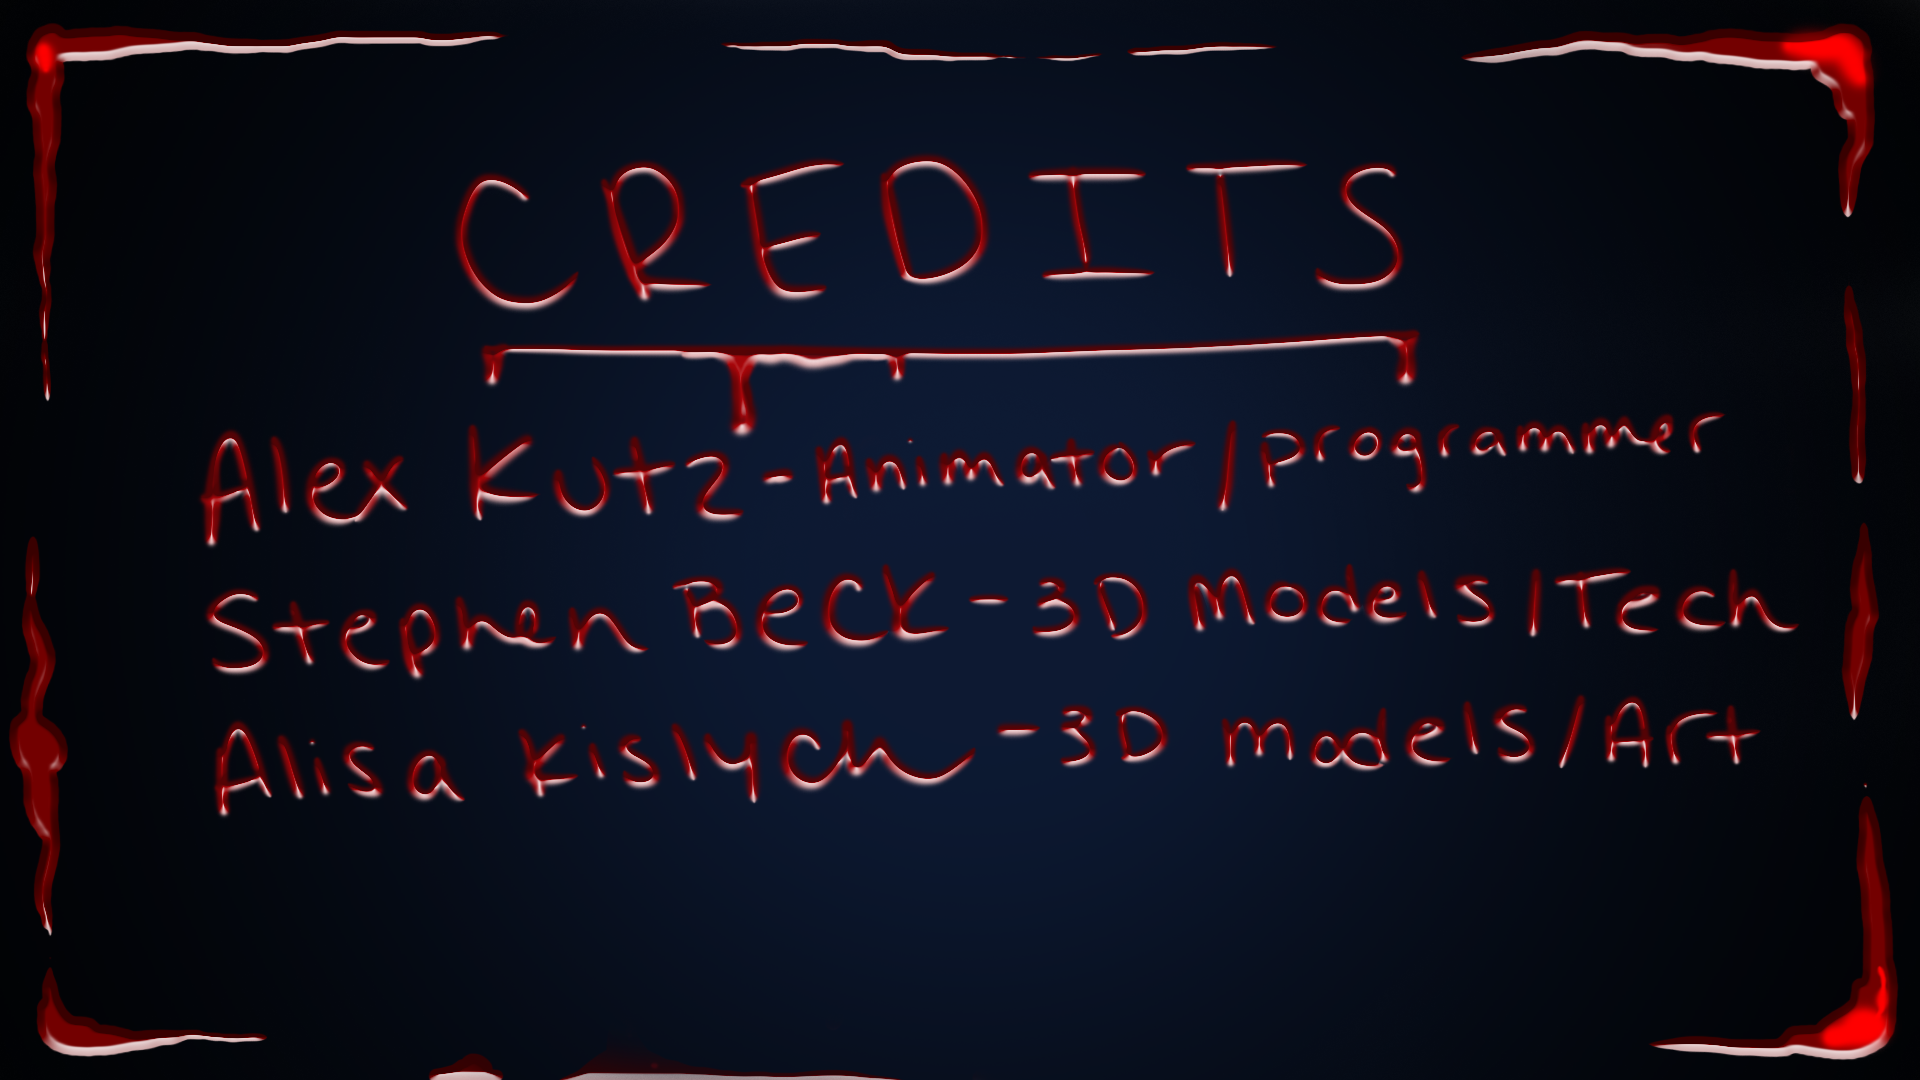 CREDITS
Alex Kutz - Animator/programmer
Stephen BeCK - 3D Models/Tech
Alisa Kislych - 3D models/Art